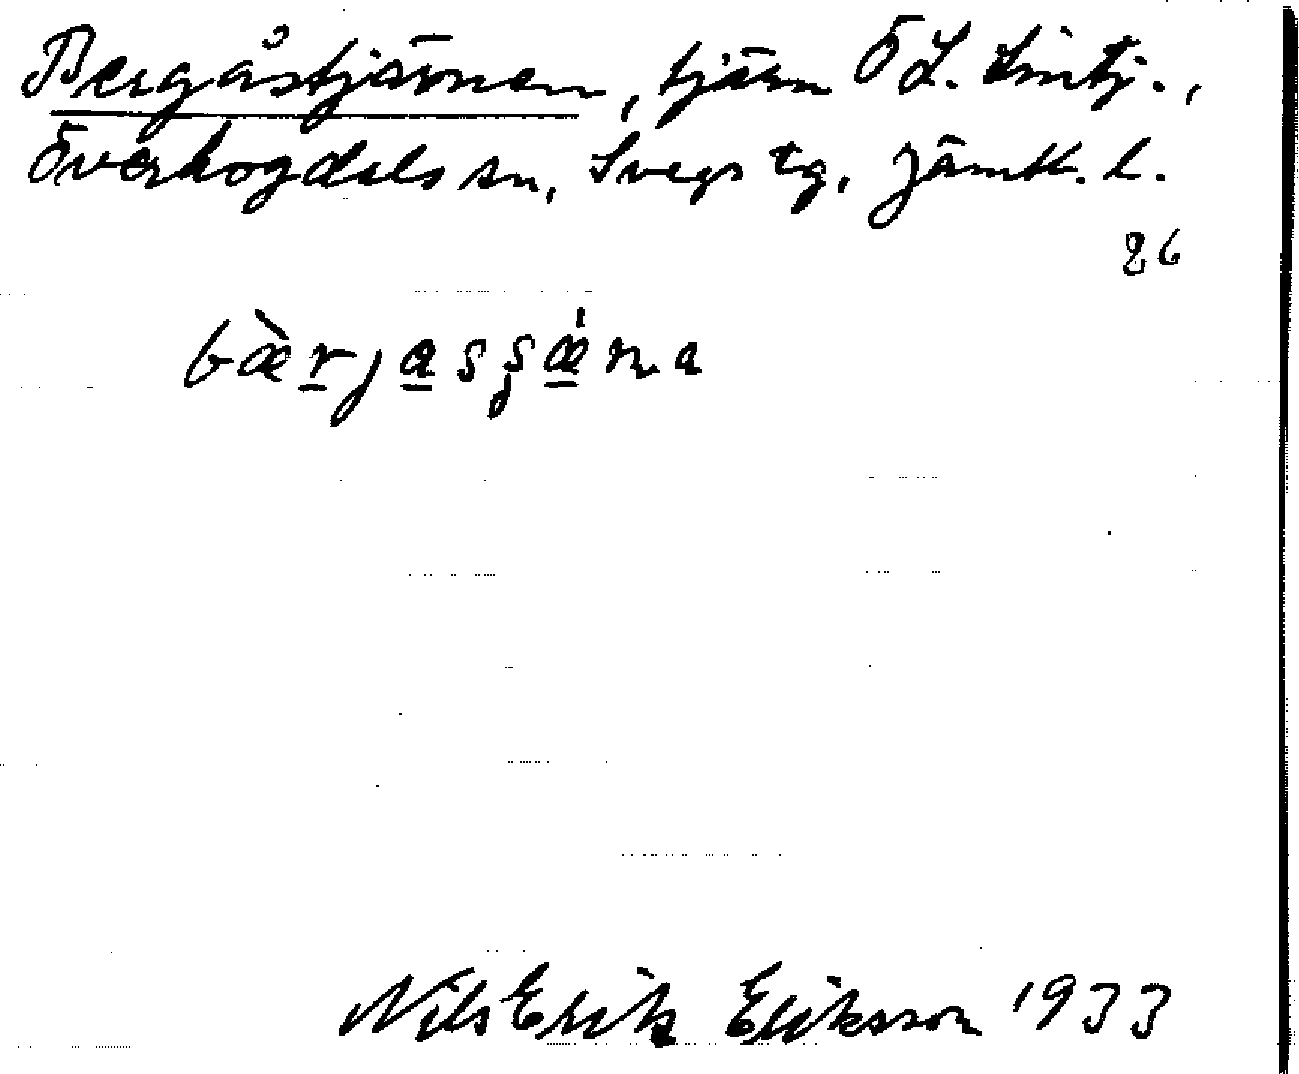 Bergåstjärnen, tjärn Ö L. Småtj.,
Överhogdals sn, Svegs tg, Jämtl. l.
26
bæ̀rjasʂǽna
Nils Erik Eriksson 1933